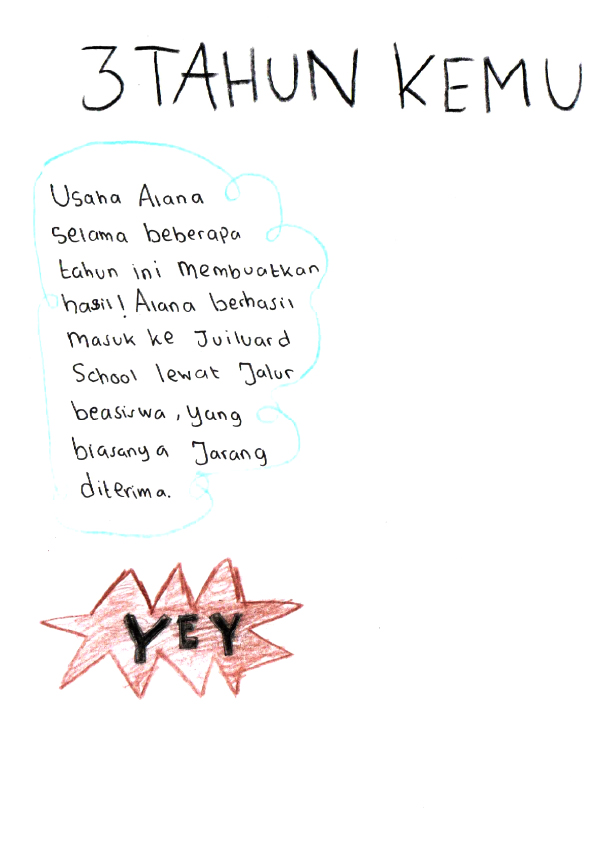 3 TAHUN KEMU
Usaha Alana
selama beberapa
tahun ini membuatkan
hasil! Alana berhasil
masuk ke Juiluard
School lewat Jalur
beasiswa, yang
biasanya Jarang
diterima.
YEY